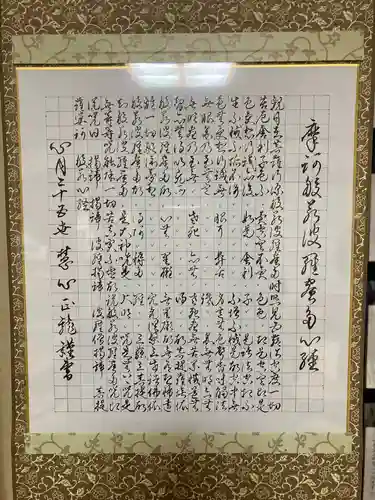 摩訶般若波羅蜜多心経
観自在菩薩行深般若波羅蜜多時照見五蘊皆空度一切
苦厄舎利子色不異空空不異色色即是空空即是
色受想行識亦復如是舎利子是諸法空相不
生不滅不垢不浄不増不減是故空中無
色無受想行識無眼耳鼻舌身意無色声香味触法
無眼界乃至無意識界無無明亦無
無明尽乃至無老死亦無老死尽無苦集滅道
無智亦無得以無所得故菩提薩埵依
般若波羅蜜多故心無罣礙無罣礙故無有恐怖遠
離一切顛倒夢想究竟涅槃三世諸仏依
般若波羅蜜多故得阿耨多羅三藐三菩提故
知般若波羅蜜多是大神呪是大明呪是無上呪是
無等等呪能除一切苦真実不虚故説般若波羅蜜多呪
即説呪曰 羯諦 羯諦 波羅羯諦 波羅僧羯諦 菩提
薩婆訶 般若心経
心月二十五世 慧心正龍謹書